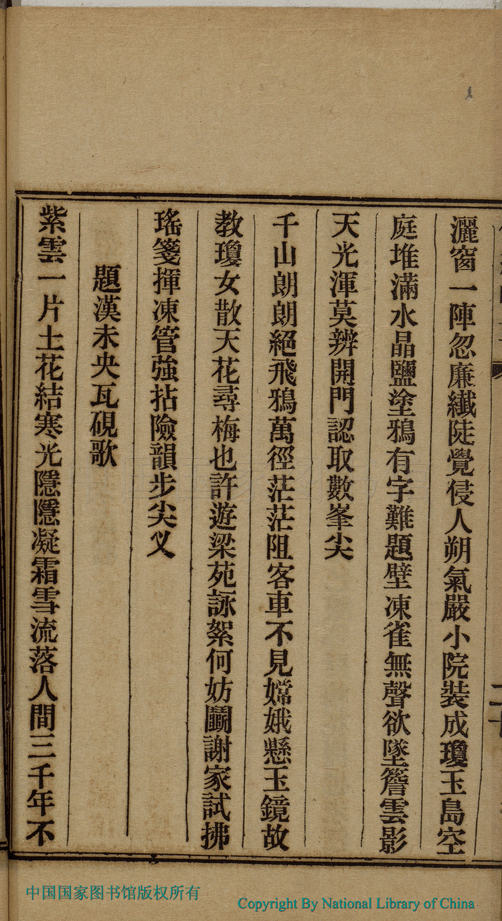 灑窗一陣忽廉纖陡覺侵人朔氣嚴小院裝成瓊玉島空
庭堆滿水晶鹽塗鴉有字難題壁凍雀無聲欲墜簷雲影
天光渾莫辨開門認取數峯尖
千山朗朗絕飛鴉萬徑茫茫阻客車不見嫦娥懸玉鏡故
教瓊女散天花尋梅也許遊梁苑詠絮何妨鬭謝家試拂
瑤箋揮凍管強拈險韻步尖叉
題漢未央瓦硯歌
紫雲一片土花結寒光隱隱凝霜雪流落人間三千年不
中国国家图书馆版权所有
Copyright By National Library of China